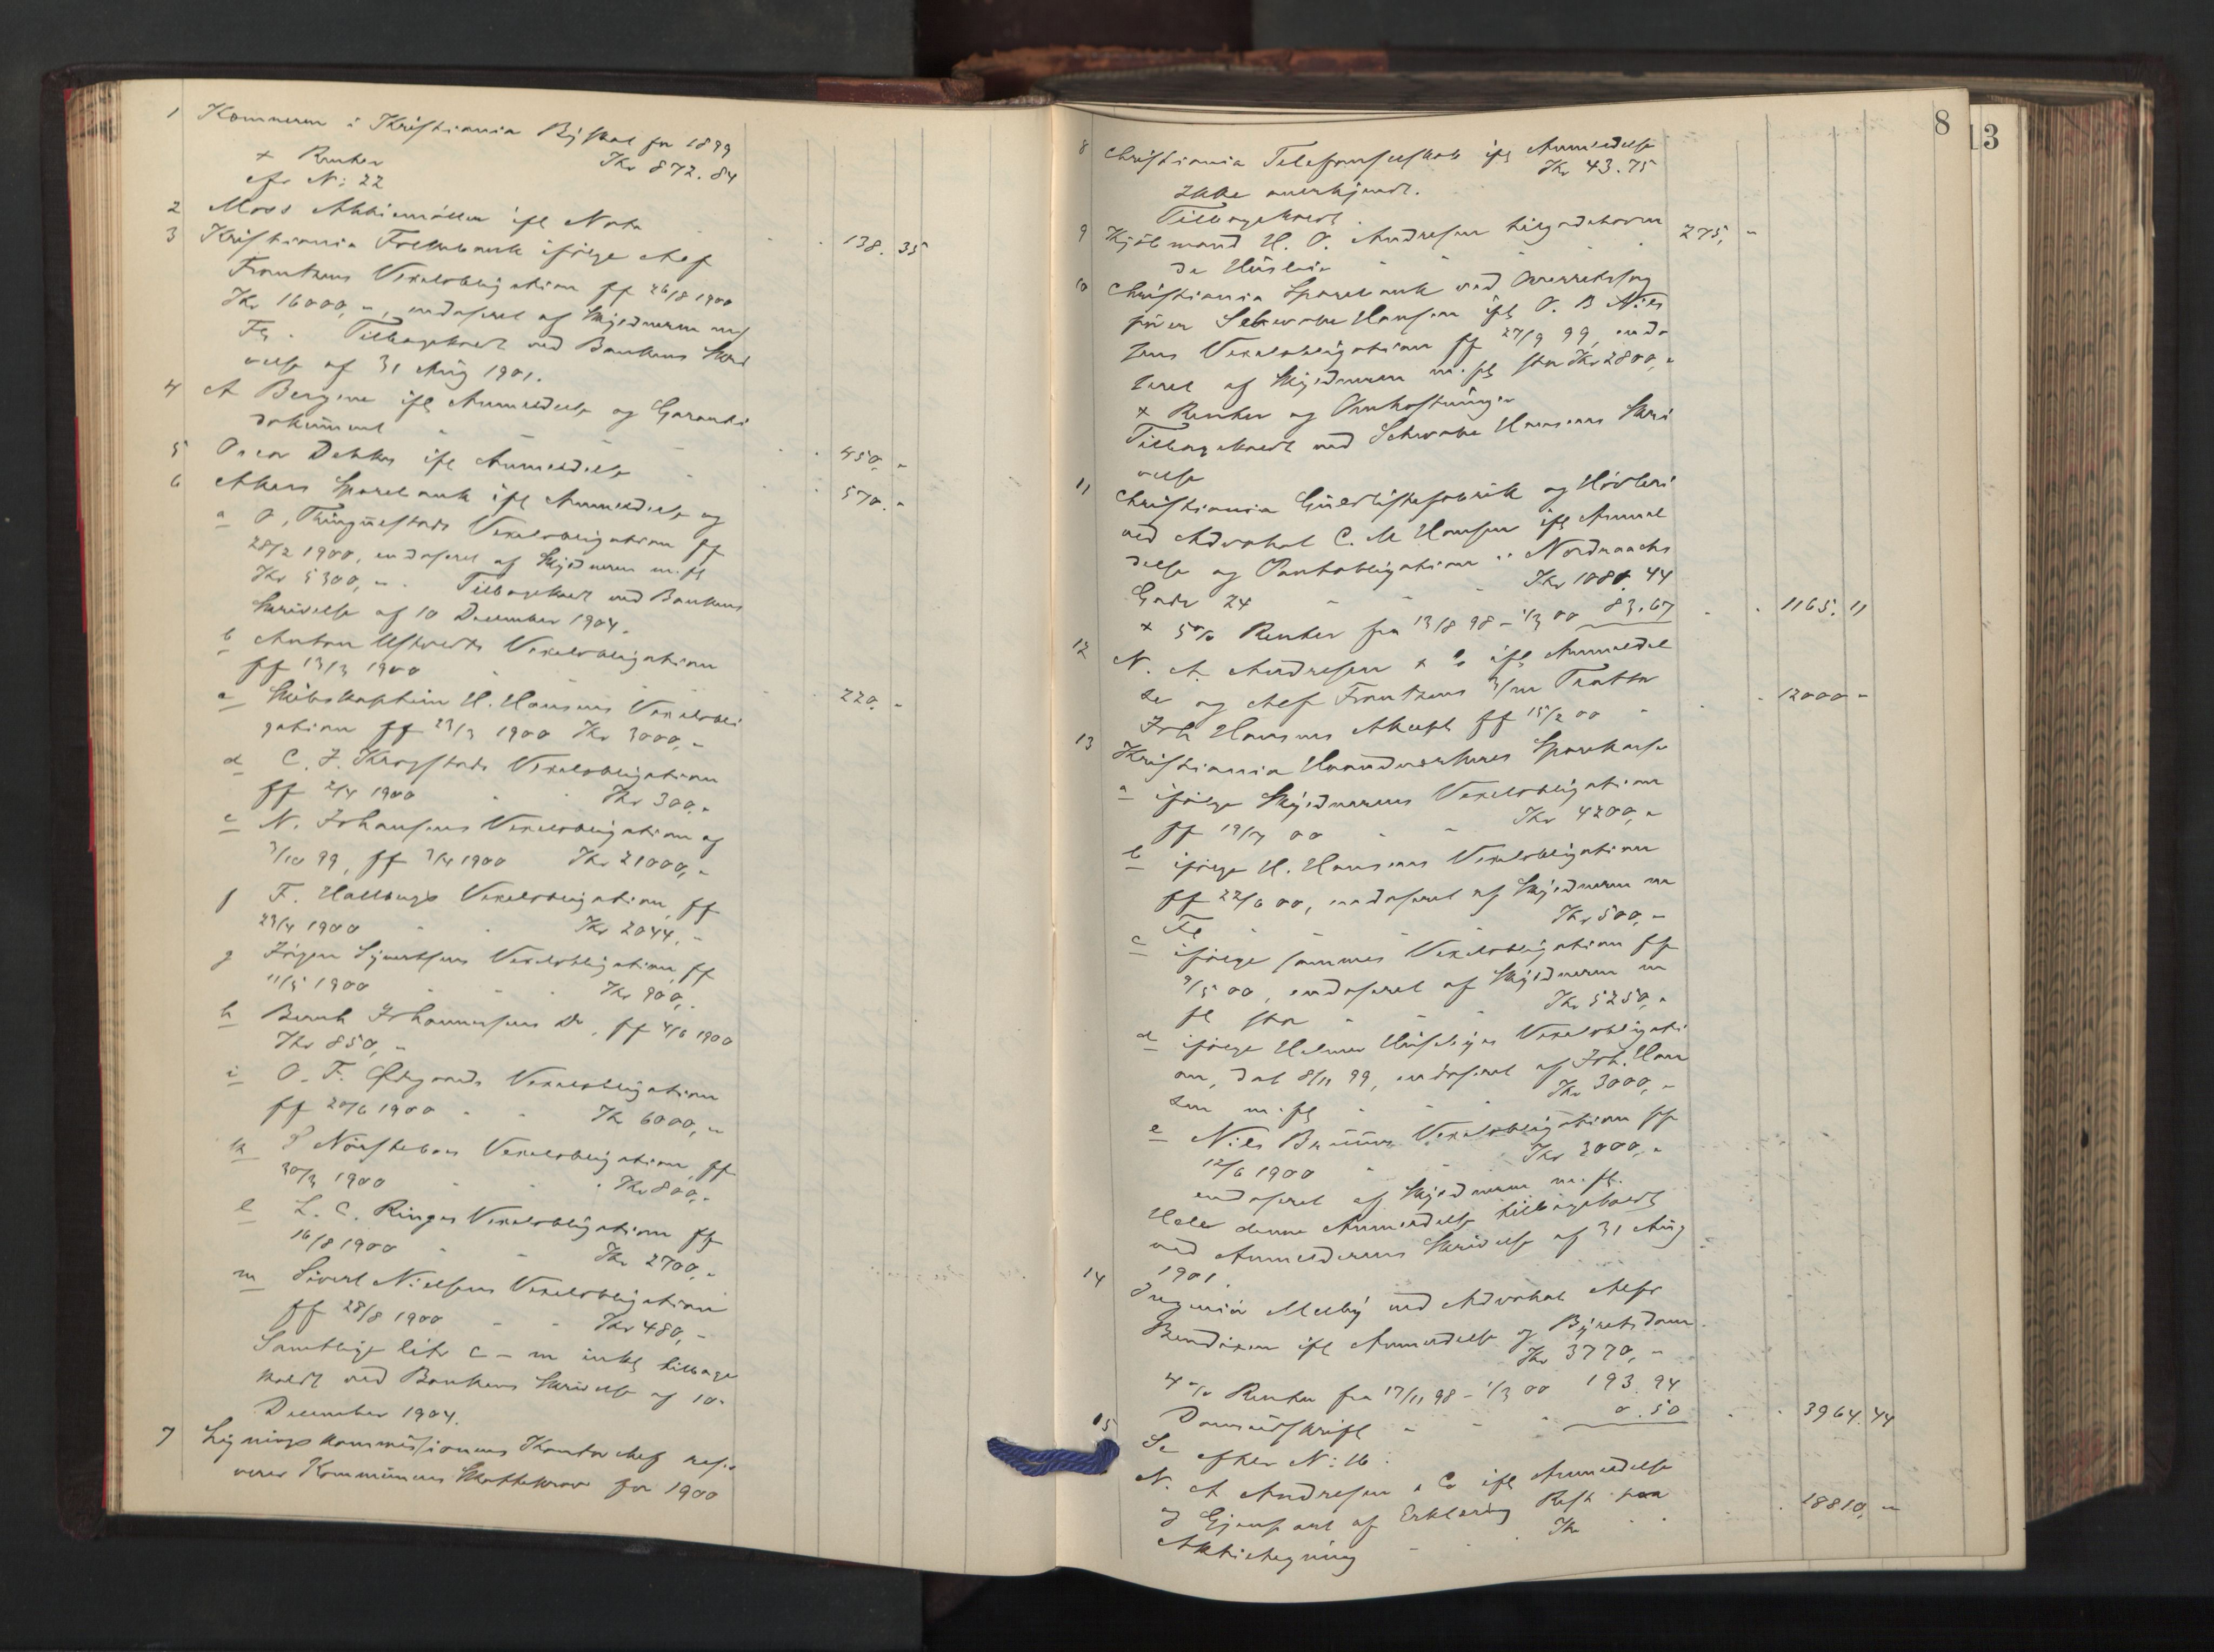 1 Kæmneren i Kristiania Byskat for 1899
+ Renter Kr 872.84
cfr N: 22
2 Moss Aktiemöller ifl Nota 138.35
3 Kristiania Folkebank ifölge Alf
Frantzens Vexelobligation ff 26/8 1900
Kr 16000,-, endoseret af Skyldneren m/
Fl. Tilbagekaldt ved Bankens Skri
velse af 31 Aug 1901.
4 A Bergene ifl Anmeldelse og Garanti
dokument 450,-
5 Oscar Dehkes ifl Anmeldelse 570.-
6 Akers Sparebank ifl Anmeldelse og
a O, Vexelobligation ff
28/2 1900, endoseret af Skyldneren m.fl
Kr 5300,-. Tilbagekaldt ved Bankens
Skrivelse af 10 December 1904.
b Anton Vexelobligation
ff 13/3 1900 220,-
c Skibskaptein H. Hansens Vexelobli
gation ff 23/3 1900 Kr 3000,-
d C. J. Krogstads Vexelobligation
ff 2/4 1900 Kr 300,-
e N. Johansens Vexelobligation af
3/10 99, ff 3/4 1900 Kr 21000,-
f F. Hallbergs Vexelobligation, ff
23/4 1900 Kr 2044,-
g Jörgen Syvertsens Vexelobligation, ff
11/5 1900 Kr 900,-
h Bernh Johannesens Do, ff 4/6 1900
Kr 850,-
i O. F. Ødegaards Vexelobligation
ff 20/6 1900 Kr 6000,-
k P Nörstebös Vexelobligation, ff
30/3 1900 Kr 800,-
l L. C. Ringes Vexelobligation ff
16/8 1900 Kr 2700,-
m Sivert Nielsens Vexelobligation
ff 28/8 1900 Kr 480,-
Samtlige litr c - m inkl tilbage
kaldt ved Bankens Skrivelse af 10.
December 1904.
7 Ligningskommissionens Kontorchef reser
verer Kommunens Skattekrav for 1900
8
13
8 Christiania Telefonselskab ifl Anmeldelse
Kr 43.75
Ikke anerkjendt.
Tilbagekaldt.
9 Kjöbmand H. O. Andresen tilgodehavn
de Husleie 275,-
10 Christiania Sparebank ved Overretssag
förer Schwabe Hansen ifl O. B Niel
sens Vexelobligation ff 27/9 99, endo
seret af Skyldneren m.fl stor Kr 2800,-
+ Renter og Omkostninger
Tilbagekaldt ved Schwabe Hansens Skri
velse
11 Christiania Guldlistefabrik og Hövleri
ved Advokat C. M Hansen ifl Anmel
delse og Pantobligation i Nordraachs
Gade 24 Kr 1081.44
+ 5% Renter fra 13/8 98 - 1/3 00 83.67 1165.11
12 N. A Andresen & Co ifl Anmeldel
se og Alf Frantzens 3/m Tratte
Joh Hansens Akcept ff 15/2 00 12000 -
13 Kristiania Haandværkeres Sparekasse
a ifölge Skyldnerens Vexelobligation
ff 19/4 00 Kr 4200,-
b ifölge H. Hansens Vexelobligation
ff 22/6 00, endoseret af Skyldneren m
Fl Kr 500,-
c ifölge sammes Vexelobligation ff
9/5 00, endoseret af Skyldneren m
fl stor Kr 5250,-
d ifölge Helmer Vexelobligati
on, dat 8/11 99, endoseret af Joh. Han
sen m.fl Kr 3000,-
e Niels Bruuns Vexelobligation ff
12/6 1900 Kr 2000,-
endoseret af Skyldneren m.fl.
Hele denne Anmeldelse tilbagekaldt
ved Anmelderens Skrivelse af 31 Aug
1901.
14 Ingeniör Melby ved Advokat Alfr
Bendixen ifl Anmeldelse og Byretsdom
Kr 3770,-
4% Renter fra 17/11 98 - 1/3 00 193.94
Domsudskrift 0.50 3964.44
15 Se efter N: 16.
N. A Andresen & Co ifl Anmeldelse
og Gjenpart af Erklæring Rest paa
Aktietegning Kr 18810,-